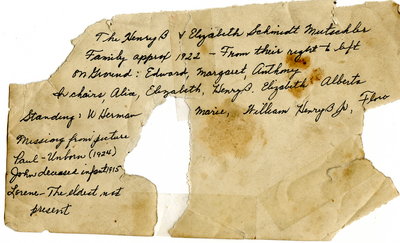 The Henry B & Elizabeth Schmidt Mutschler
Family approx 1922 - From their right to left
on Ground: Edward, Margaret, Anthony
In chairs, Alia, Elizabeth, Henry B, Elizabeth, Alberta
Standing: W Herman, Marie, William Henry B Jr, Flora
Missing from picture
Paul - Unborn (1924)
John, deceased infant 1915,
Lorene - The eldest, not
present